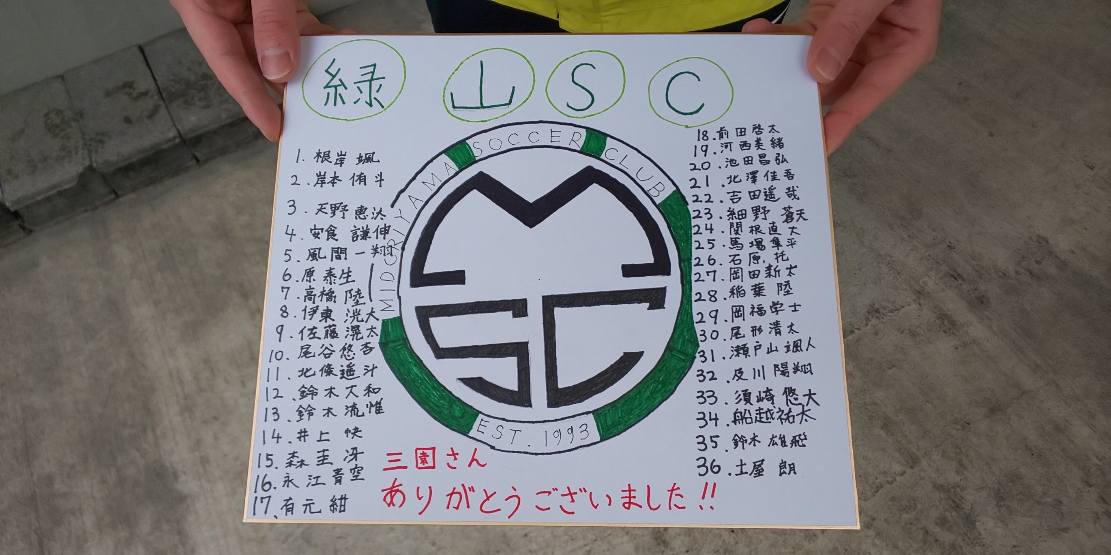 緑 山 S C
MIDORIYAMA SOCCER CLUB
MSC
EST. 1993
1. 根岸 颯
2. 岸本 侑斗
3. 天野 恵汰
4. 安食 謙伸
5. 風間 一翔
6. 原 泰生
7. 高橋 陸
8. 伊東 洸大
9. 佐藤 滉太
10. 尾谷 悠杏
11. 北條 遥斗
12. 鈴木 大和
13. 鈴木 流惟
14. 井上 快
15. 森 圭冴
16. 永江 青空
17. 有元 紺
18. 前田 啓太
19. 河西 美緒
20. 池田 昌弘
21. 北澤 佳吾
22. 吉田 遥哉
23. 細野 蒼天
24. 関根 直大
25. 馬場 隼平
26. 石原 托
27. 岡田 新太
28. 稲葉 陸
29. 岡福 学士
30. 尾形 清太
31. 瀬戸山 颯人
32. 及川 陽翔
33. 須崎 悠大
34. 船越 祐太
35. 鈴木 雄飛
36. 土屋 朗
三園さん
ありがとうございました!!